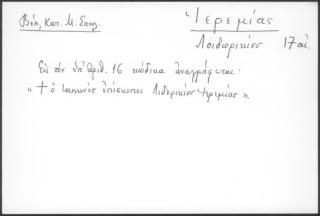 Βέη, Κατ. Μ. Σπηλ.
Ἱερεμίας
Λοιδωρικίου 17 αἰ.
Εἰς τὸν ὑπ' ἀριθ. 16 κώδικα ἀναγράφεται:
« + ὁ ταπεινὸς ἐπίσκοπος Λιδορικίου Ἱερεμίας ».